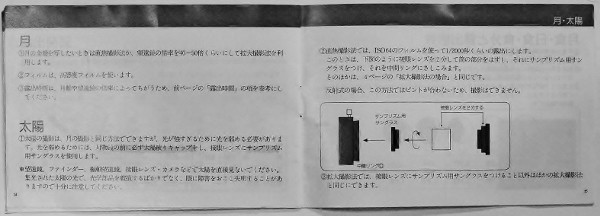 月
①月面全体を写したいときは直焦撮影法か、望遠鏡の倍率を40~50倍くらいにして拡大撮影法を利
用します。
②フィルムは、高感度フィルムを使います。
③露出時間は、月齢や望遠鏡の倍率によってもちがうため、前ページの「露出時間」の項を参考にし
てください。
太陽
①太陽の撮影は、月の撮影と同じ方法でできますが、光が強すぎるために光を弱める必要がありま
す。光を弱めるためには、対物筒の前に必ず太陽絞りキャップをし、接眼レンズにサンプリズム
用サングラスを併用します。
望遠鏡、ファインダー、接眼レンズ・カメラなどで太陽を直接見ないでください。
集光された太陽の光で、光学部品を破損するばかりでなく、眼に障害をおこす
りますので十分に注意してください。
月・太陽
②直焦撮影法では、ISO 64のフィルムを使って1/2000秒くらいに露出にします。
このときは、下図のように接眼レンズを2分して前の部分をはずし、それにサンプリズム用サン
グラスをつけ、それを中間リングにさしこみます。
そのほかは、4ページの「拡大撮影法の場合」と同じです。
反射式の場合、この方法ではピントが合わないため、撮影はできません。
接眼レンズを2分する
サンプリズム用
サングラス
中間リング
③拡大撮影法では、接眼レンズにサンプリズム用サングラスをつけること以外はほかの拡大撮影法
と同じにできます。